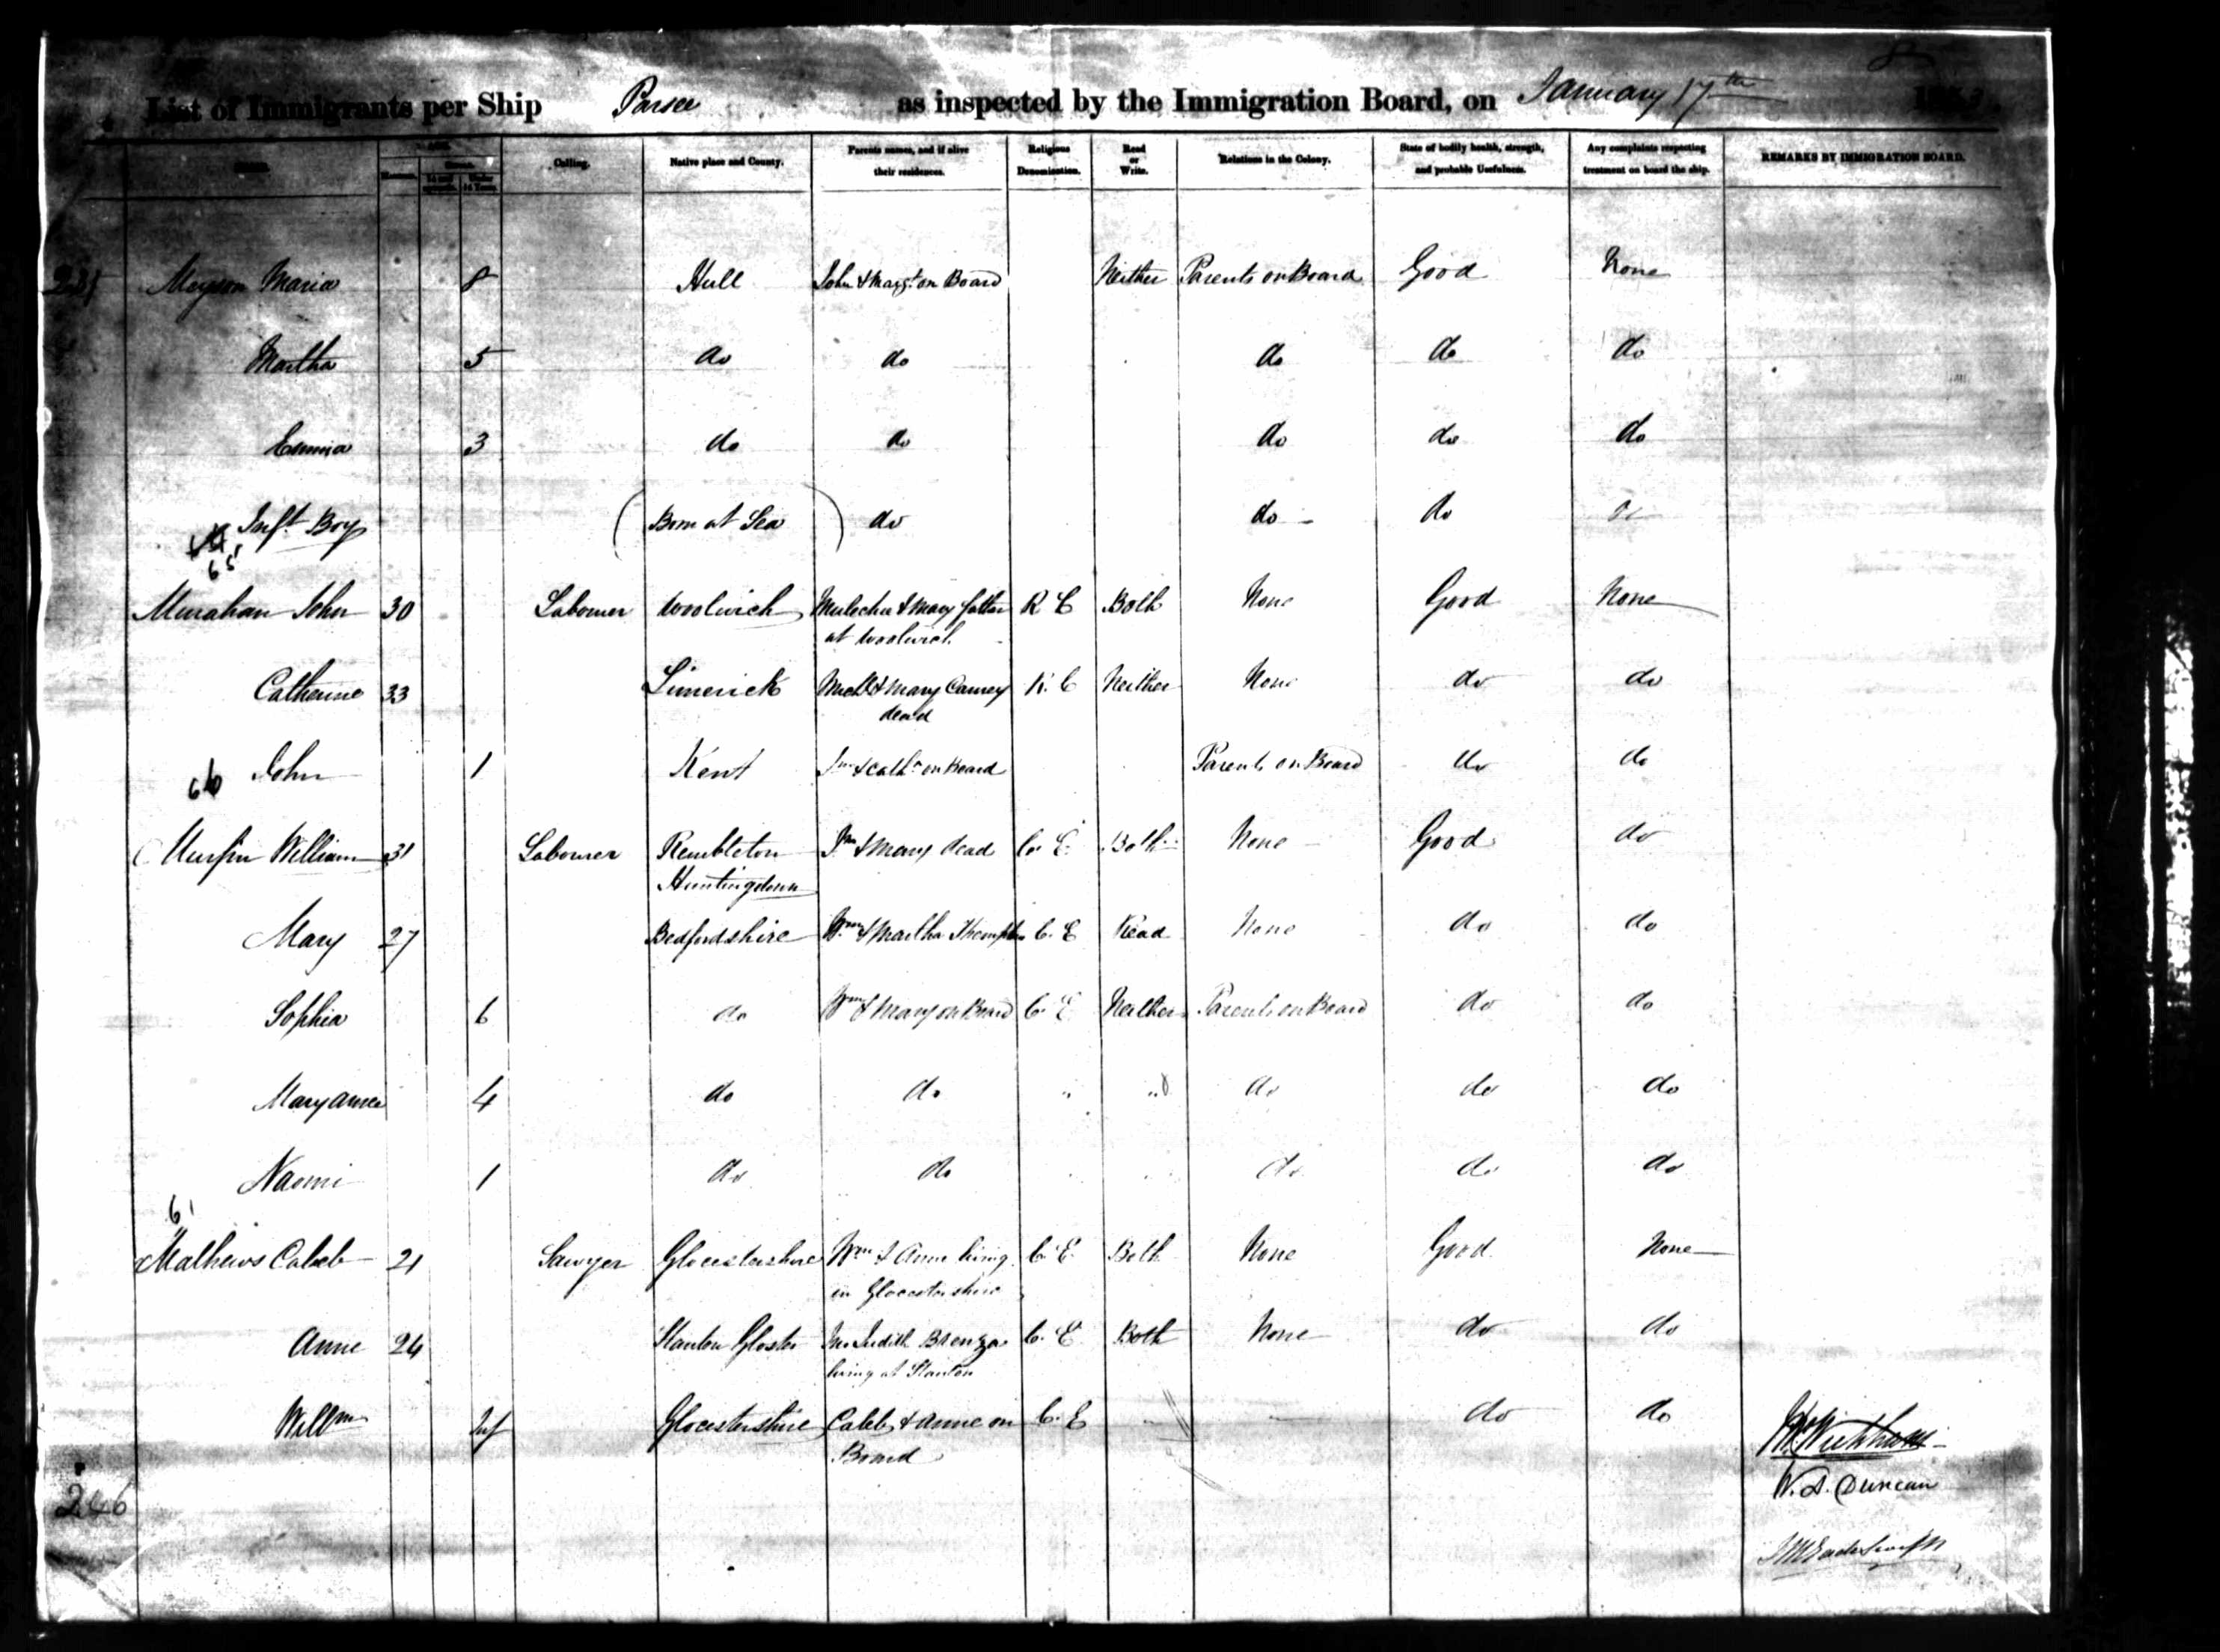 List of Immigrants per Ship Parsee as inspected by the Immigration Board, on January 17th 1853.
Married. Under 14 Years. Calling. Native place and County. Parents names, and if alive their residences. Religious Denomination. Read or Write. Relations in the Colony. State of bodily health, strength, and probable Usefulness. Any complaints respecting treatment on board the ship. REMARKS BY IMMIGRATION BOARD.
231 Maria 8 Hull John & Margt. on Board Neither Parents on Board Good None
Martha 5 do do do do do
Emma 3 do do do do do
Inft. Boy (Born at Sea) do do do do
65
John 30 Labourer Woolwich & Mary father R C Both None Good None
at Woolwich
Catherine 33 Limerick Michl & Mary Carney R. C Neither None do do
dead
John 1 Kent Jno & Cathe on Board Parents on Board do do
66
Murfin William 31 Labourer Kembleton Jno & Mary dead C. E. Both None Good do
Huntingdon
Mary 27 Bedfordshire Wm & Martha C. E Read None do do
Sophia 6 do Wm & Mary on Board C. E Neither Parents on Board do do
Maryanne 4 do do " " do do do
Naomi 1 do do do do do
Mathews Caleb 21 Sawyer Glocestershire Wm & Anne living C. E. Both None Good None
in Glocestershire
Anne 24 Stanton Gloster Judith living at Stanton C. E Both None do do
Willm Inf Glocestershire Caleb & Anne on C. E do do
Board
W. A. Duncan
246